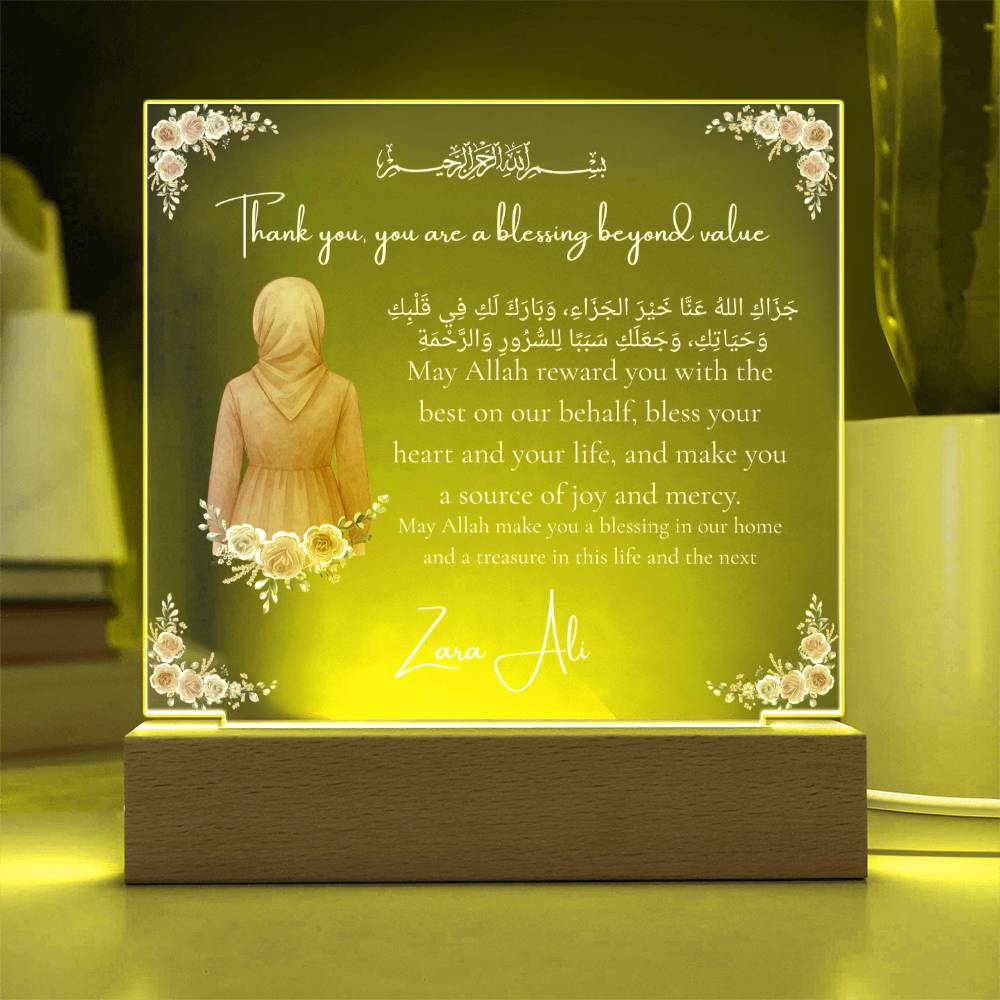 بسم الله الرحمن الرحيم
Thank you, you are a blessing beyond value
جَزَاكِ اللهُ عَنَّا خَيْرَ الجَزَاءِ، وَبَارَكَ لَكِ فِي قَلْبِكِ
وَحَيَاتِكِ، وَجَعَلَكِ سَبَبًا لِلسُّرُورِ وَالرَّحْمَةِ
May Allah reward you with the
best on our behalf, bless your
heart and your life, and make you
a source of joy and mercy.
May Allah make you a blessing in our home
and a treasure in this life and the next
Zara Ali